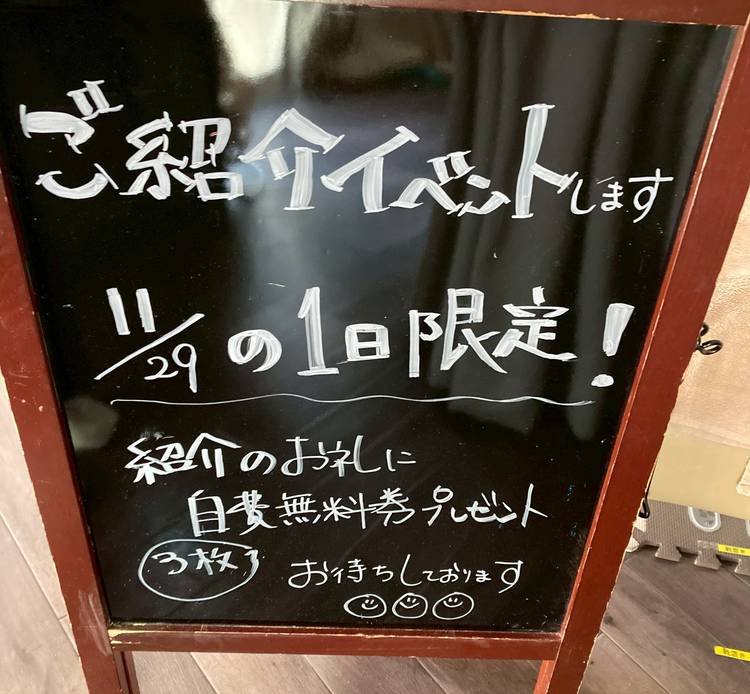 ご紹介イベントします
11/29の1日限定!
紹介のお礼に
自費無料券プレゼント
3枚
お待ちしております